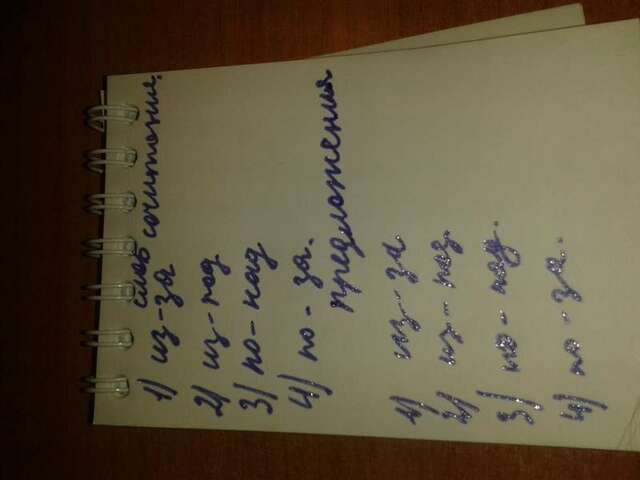 слов сочитание.
1) из-за
2) из-под
3) по-над
4) по-за.
предложения
1) из-за
2) из-под.
3) по-над.
4) по-за.